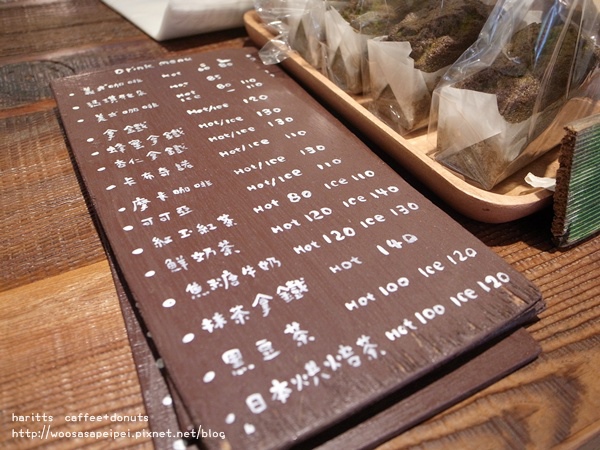 Drink menu
美式咖啡 Hot
美式咖啡 Hot 80 110
拿鐵 Hot/Ice 120
蜂蜜拿鐵 Hot/Ice 130
杏仁拿鐵 Hot/Ice 130
卡布奇諾 Hot/Ice 110
摩卡咖啡 Hot/Ice 130
可可亞 Hot/Ice 110
紅玉紅茶 Hot 80 Ice 110
鮮奶茶 Hot 120 Ice 140
焦糖牛奶 Hot 120 Ice 130
抹茶拿鐵 Hot 140
黑豆茶 Hot 100 Ice 120
日本烘焙茶 Hot 100 Ice 120
haritts caffee+donuts
http://woosasapeipei.pixnet.net/blog